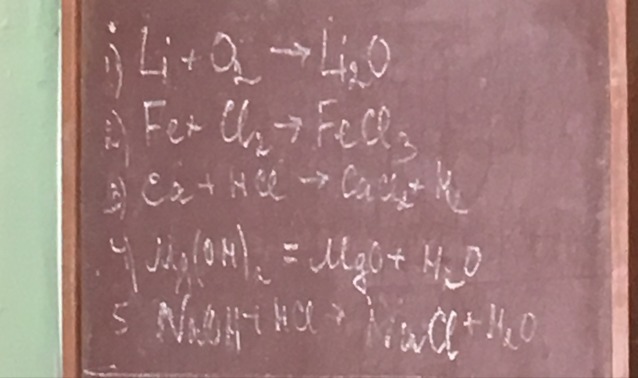 1) Li + O₂ → Li₂O
2) Fe + Cl₂ → FeCl₃
3) Ca + HCl → CaCl₂ + H₂
4) Mg(OH)₂ = MgO + H₂O
5 NaOH + HCl → NaCl + H₂O